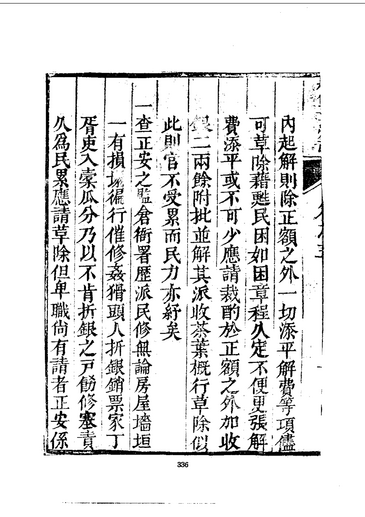 內起解則除正額之外一切添平解費等項儘
可草除藉甦民困如困章程久定不便更張解
費添平或不可少應請裁酌於正額之外加收
銀二兩餘附批並解其派收茶葉概行草除似
此則官不受累而民力亦紓矣
一查正安之監倉衙署歷派民修無論房屋墻垣
一有損壞催修奸猾頭人折銀銷票家丁
胥吏入橐瓜分乃以不肯折銀之戶飭修塞責
久為民累應請草除但卑職尚有請者正安係
336